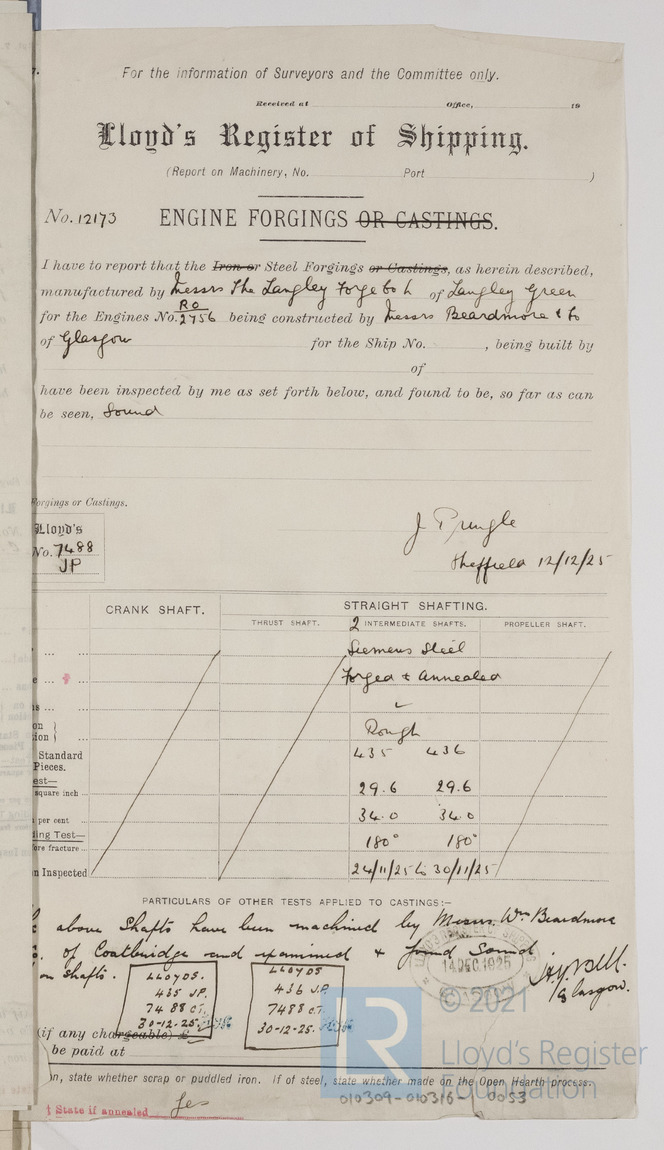 For the information of Surveyors and the Committee only.
Received at Office, 19
Lloyd's Register of Shipping.
(Report on Machinery, No. Port )
No. 12173 ENGINE FORGINGS OR CASTINGS.
I have to report that the Iron or Steel Forgings or Castings, as herein described,
manufactured by Messrs The Langley Forge Co L of Langley Green
RO
for the Engines No. 2756 being constructed by Messrs Beardmore & Co
of Glasgow for the Ship No. , being built by
of
have been inspected by me as set forth below, and found to be, so far as can
be seen, Sound
Forgings or Castings.
Lloyd's
No. 7488
JP
J Pringle
Sheffield 12/12/25
CRANK SHAFT. STRAIGHT SHAFTING.
THRUST SHAFT. 2 INTERMEDIATE SHAFTS. PROPELLER SHAFT.
Siemens Steel
Forged & Annealed
Rough
Standard 435 436
Pieces.
est—
square inch ... 29.6 29.6
per cent ... 34.0 34.0
ing Test— 180° 180°
ore fracture ...
n Inspected 24/11/25 to 30/11/25
PARTICULARS OF OTHER TESTS APPLIED TO CASTINGS:—
above Shafts have been machined by Messrs Wm Beardmore
of Coatbridge and examined & found Sound
on shafts.
LLOYDS. LLOYDS
435 JP. 436 J.P.
7488 CT. 7488 CT.
30-12-25. 30-12-25.
14 DEC 1925
Glasgow.
(if any chargeable) £
be paid at
on, state whether scrap or puddled iron. If of steel, state whether made on the Open Hearth process.
† State if annealed Yes
010309-010316-0053
© 2021
Lloyd's Register
Foundation